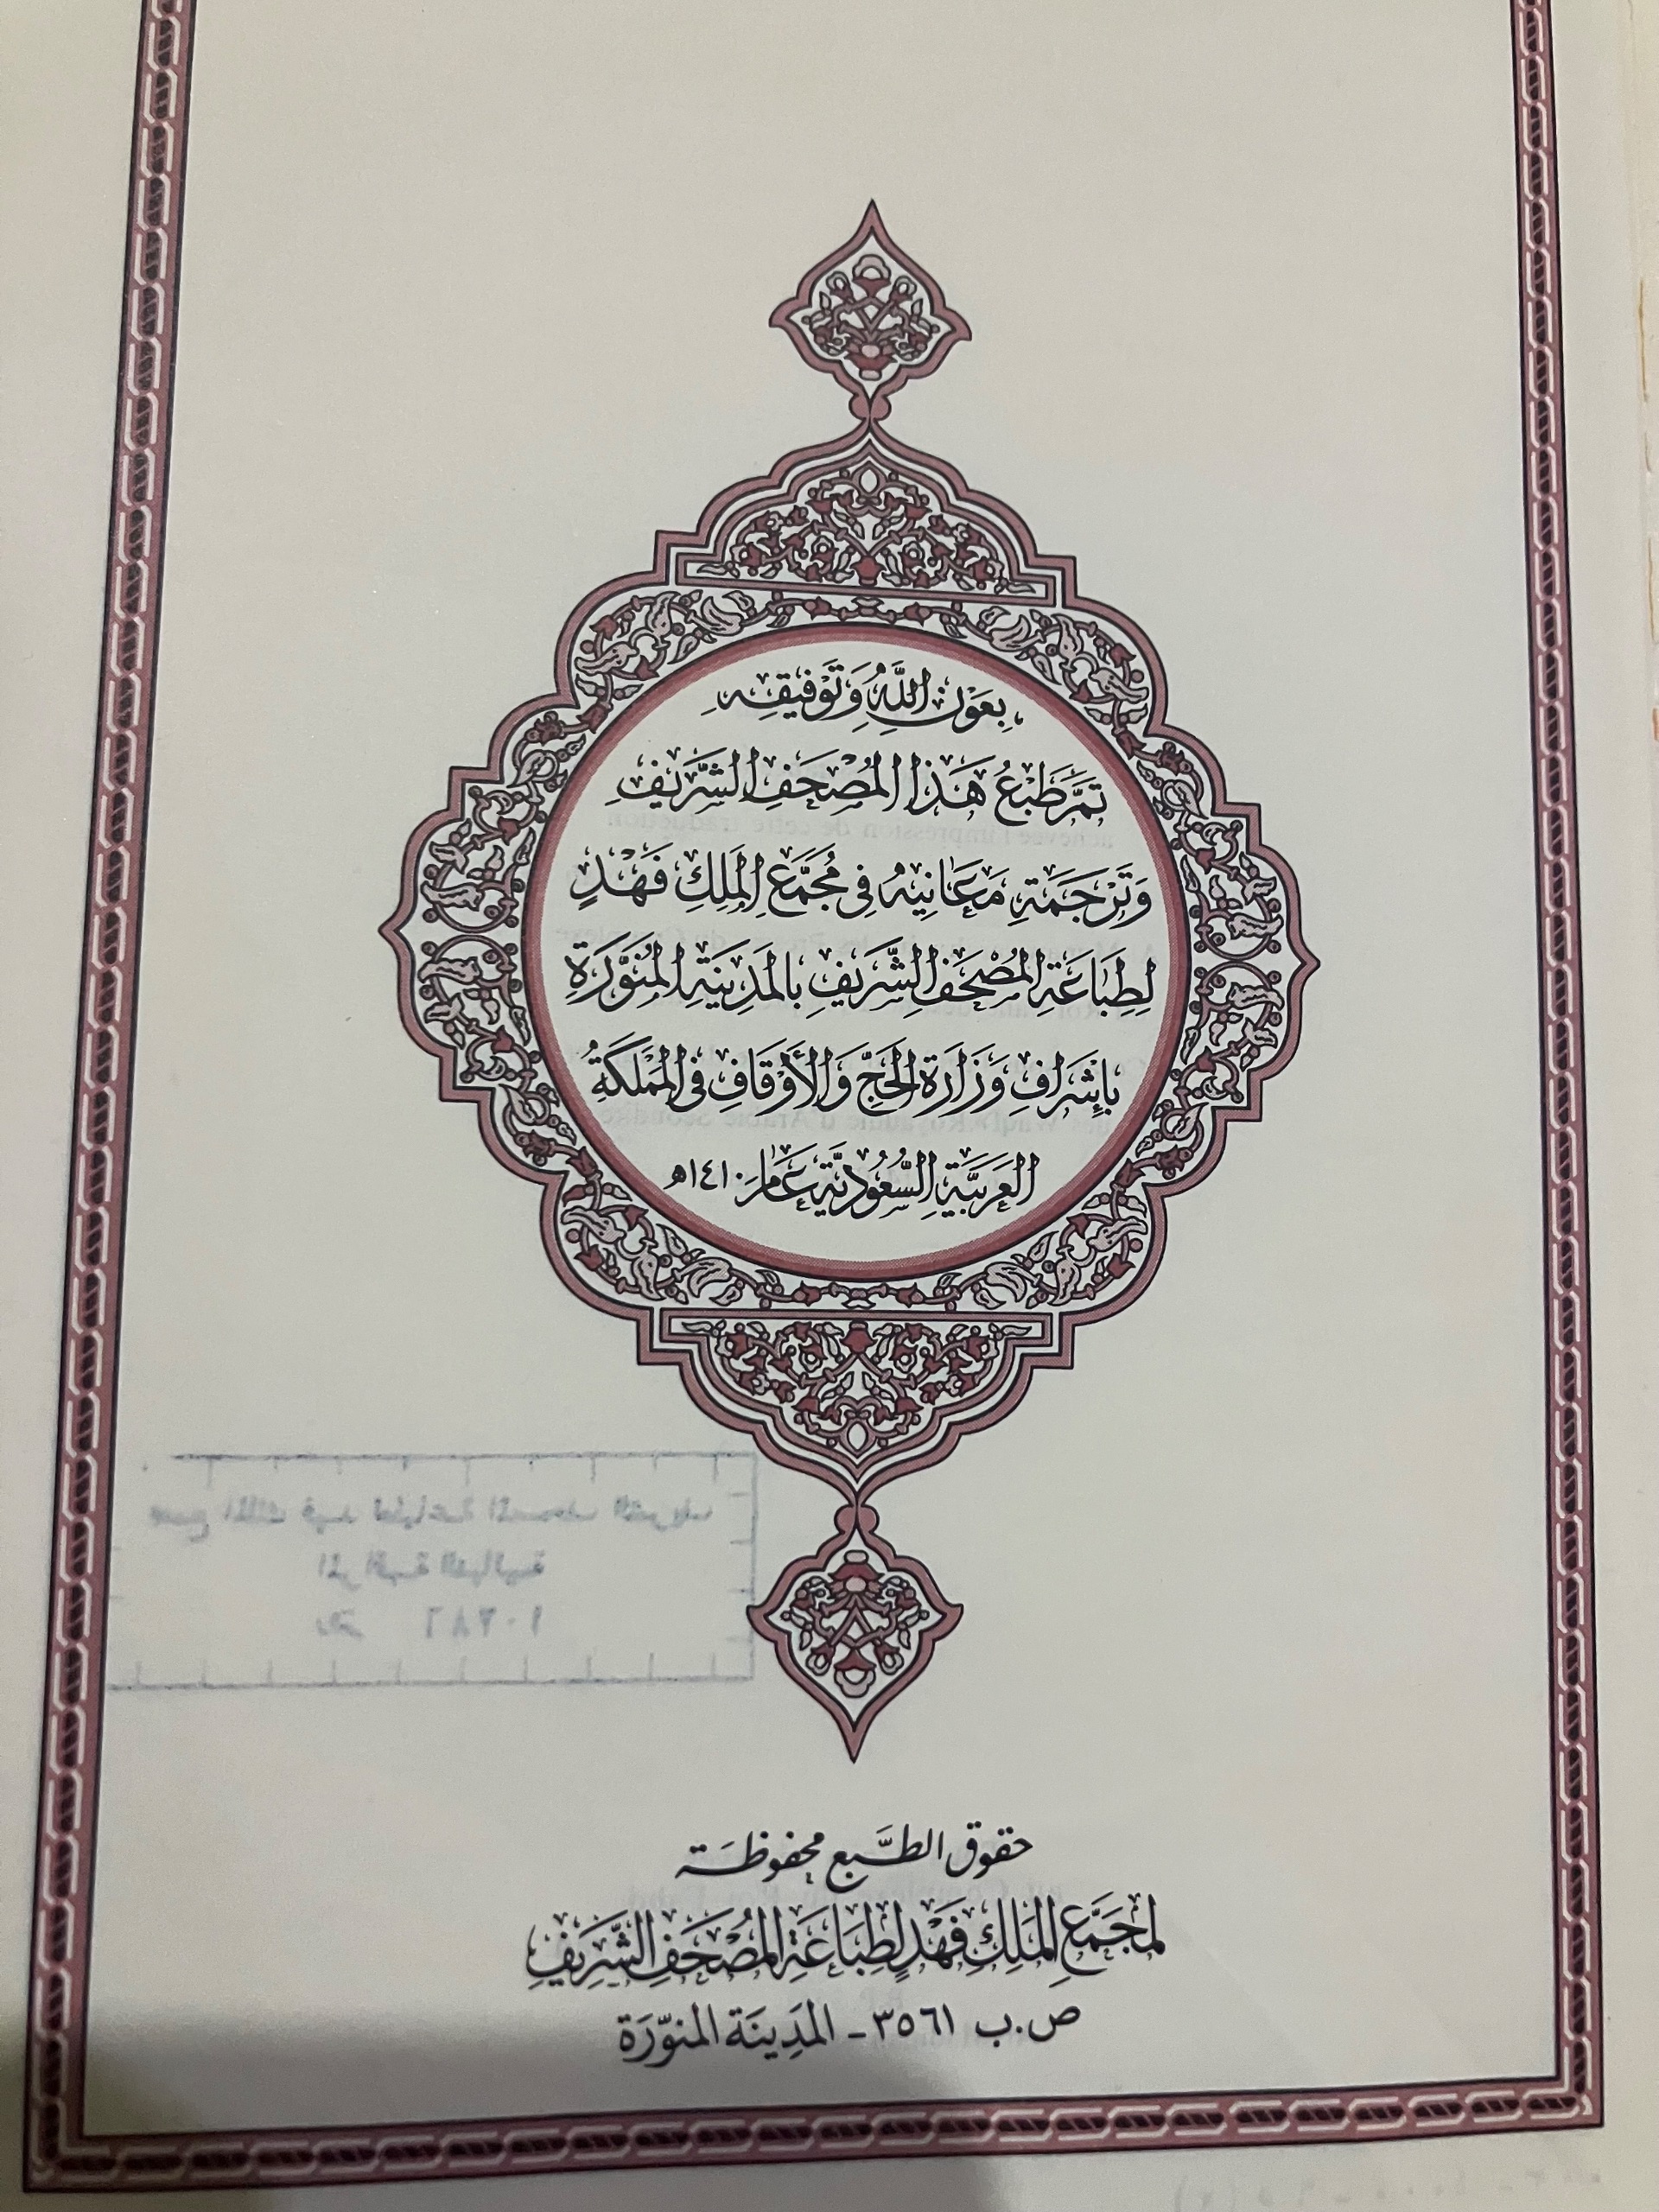 بِعَوْنِ اللَّهِ وَتَوْفِيقِهِ
تمَّ طَبْعُ هَذَا الْمُصْحَفِ الشَّرِيفِ
وَتَرْجَمَةِ مَعَانِيهِ فِي مُجَمَّعِ الْمَلِكِ فَهْدٍ
لِطِبَاعَةِ الْمُصْحَفِ الشَّرِيفِ بِالْمَدِينَةِ الْمُنَوَّرَةِ
بِإِشْرَافِ وَزَارَةِ الْحَجِّ وَالْأَوْقَافِ فِي الْمَمْلَكَةِ
الْعَرَبِيَّةِ السُّعُودِيَّةِ عَامَ ١٤١٠هـ
مجمع الملك فهد لطباعة المصحف الشريف
المراقبة النهائية
حقوق الطَّبع محفوظَة
لمجَمَّعِ الْمَلِكِ فَهْدٍ لِطِبَاعَةِ الْمُصْحَفِ الشَّرِيفِ
ص.ب ٣٥٦١ - المَدِينَة المنوّرَة